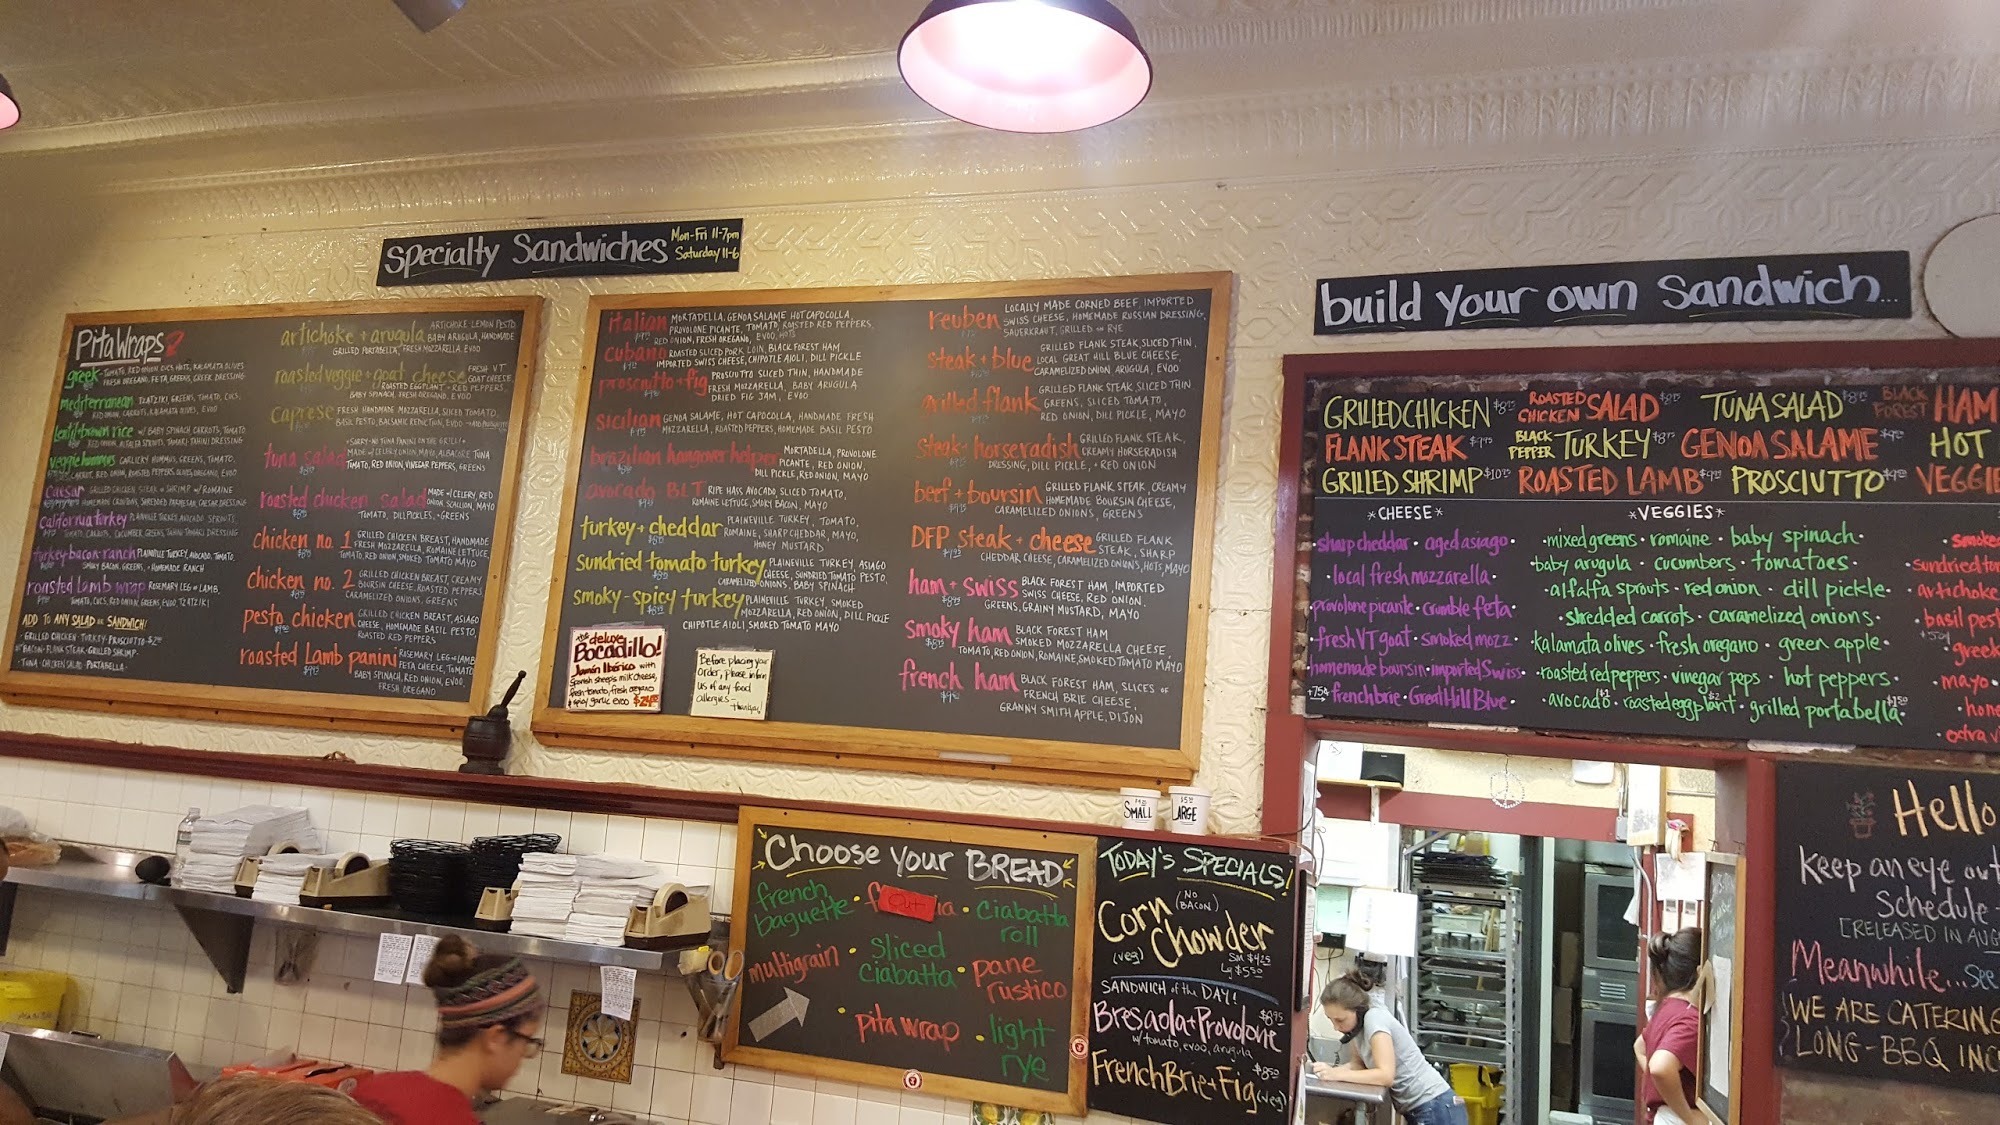 Specialty Sandwiches
Mon-Fri 11-7pm
Saturday 11-6
Pita Wraps
greek - TOMATO, RED ONION, CUCS, HOTS, KALAMATA OLIVES
FRESH OREGANO, FETA, GREENS, GREEK DRESSING
mediterranean TZATZIKI, GREENS, TOMATO, CUCS,
RED ONION, CARROTS, KALAMATA OLIVES, EVOO
lentil + brown rice w/ BABY SPINACH, CARROTS, TOMATO
RED ONION, ALFALFA SPROUTS, TAMARI TAHINI DRESSING
veggie hummus GARLICKY HUMMUS, GREENS, TOMATO,
CARROT, RED ONION, ROASTED PEPPERS, OLIVES, OREGANO, EVOO
caesar GRILLED CHICKEN, STEAK or SHRIMP w/ ROMAINE
HOMEMADE CROUTONS, SHREDDED PARMESAN, CAESAR DRESSING
california turkey PLAINVILLE TURKEY, AVOCADO, SPROUTS,
TOMATO, CARROTS, CUCUMBER, GREENS, TAHINI TAMARI DRESSING
turkey-bacon-ranch PLAINVILLE TURKEY, AVOCADO, TOMATO,
SMOKY BACON, GREENS, + HOMEMADE RANCH
roasted lamb wrap ROSEMARY LEG of LAMB,
TOMATO, CUCS, RED ONION, GREENS, EVOO, TZATZIKI
ADD TO ANY SALAD or SANDWICH!
- GRILLED CHICKEN · TURKEY · PROSCIUTTO - $2.00
BACON · FLANK STEAK · GRILLED SHRIMP -
- TUNA · CHICKEN SALAD · PORTABELLA -
artichoke + arugula ARTICHOKE LEMON PESTO
BABY ARUGULA, HANDMADE
GRILLED PORTABELLA, FRESH MOZZARELLA, EVOO
roasted veggie + goat cheese FRESH VT
GOAT CHEESE,
ROASTED EGGPLANT + RED PEPPERS,
BABY SPINACH, FRESH OREGANO, EVOO
caprese FRESH HANDMADE MOZZARELLA, SLICED TOMATO,
BASIL PESTO, BALSAMIC REDUCTION, EVOO
- SORRY - NO TUNA PANINI ON THE GRILL! -
tuna salad MADE w/ CELERY, ONION, MAYO, ALBACORE TUNA
TOMATO, RED ONION, VINEGAR PEPPERS, GREENS
roasted chicken salad MADE w/ CELERY, RED
ONION, SCALLION, MAYO
TOMATO, DILL PICKLES, + GREENS
chicken no. 1 GRILLED CHICKEN BREAST, HANDMADE
FRESH MOZZARELLA, ROMAINE LETTUCE,
TOMATO, RED ONION, SMOKED TOMATO MAYO
chicken no. 2 GRILLED CHICKEN BREAST, CREAMY
BOURSIN CHEESE, ROASTED PEPPERS,
CARAMELIZED ONIONS, GREENS
pesto chicken GRILLED CHICKEN BREAST, ASIAGO
CHEESE, HOMEMADE BASIL PESTO,
ROASTED RED PEPPERS
roasted lamb panini ROSEMARY LEG of LAMB
FETA CHEESE, TOMATO
BABY SPINACH, RED ONION, EVOO,
FRESH OREGANO
italian MORTADELLA, GENOA SALAME, HOT CAPOCOLLA,
PROVOLONE PICANTE, TOMATO, ROASTED RED PEPPERS,
RED ONION, FRESH OREGANO, EVOO, HOTS
cubano ROASTED SLICED PORK LOIN, BLACK FOREST HAM
IMPORTED SWISS CHEESE, CHIPOTLE AIOLI, DILL PICKLE
prosciutto + fig PROSCIUTTO SLICED THIN, HANDMADE
FRESH MOZZARELLA, BABY ARUGULA
DRIED FIG JAM, EVOO
sicilian GENOA SALAME, HOT CAPOCOLLA, HANDMADE FRESH
MOZZARELLA, ROASTED PEPPERS, HOMEMADE BASIL PESTO
brazilian hangover helper MORTADELLA, PROVOLONE
PICANTE, RED ONION,
DILL PICKLE, RED ONION, MAYO
avocado BLT RIPE HASS AVOCADO, SLICED TOMATO,
ROMAINE LETTUCE, SMOKY BACON, MAYO
turkey + cheddar PLAINEVILLE TURKEY, TOMATO,
ROMAINE, SHARP CHEDDAR, MAYO,
HONEY MUSTARD
sundried tomato turkey PLAINEVILLE TURKEY, ASIAGO
CHEESE, SUNDRIED TOMATO PESTO,
CARAMELIZED ONIONS, BABY SPINACH
smoky-spicy turkey PLAINEVILLE TURKEY, SMOKED
MOZZARELLA, RED ONION, DILL PICKLE
CHIPOTLE AIOLI, SMOKED TOMATO MAYO
the deluxe
Bocadillo!
Jamón Ibérico with
Spanish sheeps milk cheese,
fresh tomato, fresh oregano
& spicy garlic evoo $24.95
Before placing your
Order, please inform
us of any food
allergies -
- thank you!
reuben LOCALLY MADE CORNED BEEF, IMPORTED
SWISS CHEESE, HOMEMADE RUSSIAN DRESSING,
SAUERKRAUT, GRILLED on RYE
steak + blue GRILLED FLANK STEAK, SLICED THIN,
LOCAL GREAT HILL BLUE CHEESE,
CARAMELIZED ONION, ARUGULA, EVOO
grilled flank GRILLED FLANK STEAK, SLICED THIN
GREENS, SLICED TOMATO,
RED ONION, DILL PICKLE, MAYO
steak + horseradish GRILLED FLANK STEAK,
CREAMY HORSERADISH
DRESSING, DILL PICKLE, + RED ONION
beef + boursin GRILLED FLANK STEAK, CREAMY
HOMEMADE BOURSIN CHEESE,
CARAMELIZED ONIONS, GREENS
DFP steak + cheese GRILLED FLANK
STEAK, SHARP
CHEDDAR CHEESE, CARAMELIZED ONIONS, HOTS, MAYO
ham + swiss BLACK FOREST HAM, IMPORTED
SWISS CHEESE, RED ONION,
GREENS, GRAINY MUSTARD, MAYO
smoky ham BLACK FOREST HAM
SMOKED MOZZARELLA CHEESE,
TOMATO, RED ONION, ROMAINE, SMOKED TOMATO MAYO
french ham BLACK FOREST HAM, SLICES OF
FRENCH BRIE CHEESE,
GRANNY SMITH APPLE, DIJON
build your own sandwich...
GRILLED CHICKEN $8.75 ROASTED CHICKEN SALAD $8.75 TUNA SALAD $8.75 BLACK FOREST HAM
FLANK STEAK $9.75 BLACK PEPPER TURKEY $8.75 GENOA SALAME HOT
GRILLED SHRIMP $10.75 ROASTED LAMB PROSCIUTTO VEGGIE
* CHEESE *
· sharp cheddar · aged asiago ·
· local fresh mozzarella ·
· provolone picante · crumble feta ·
· fresh VT goat · smoked mozz ·
· homemade boursin · imported Swiss ·
+75¢ french brie · Great Hill Blue ·
* VEGGIES *
· mixed greens · romaine · baby spinach ·
· baby arugula · cucumbers · tomatoes ·
· alfalfa sprouts · red onion · dill pickle ·
· shredded carrots · caramelized onions ·
· kalamata olives · fresh oregano · green apple ·
· roasted red peppers · vinegar peps · hot peppers ·
· avocado $1 · roasted eggplant $2 · grilled portabella $1.50
· smoked
· sundried to
· artichoke
· basil pest
· greek
· mayo ·
· hone
· extra vi
SMALL
LARGE
Choose your BREAD
french baguette · f OUT ia · ciabatta roll
multigrain · sliced ciabatta · pane rustico
· pita wrap · light rye
TODAY'S SPECIALS!
(NO BACON)
Corn Chowder
(veg) SM $4.25
Lg $5.50
SANDWICH of the DAY!
Bresaola + Provolone $8.95
w/ tomato, evoo, arugula
French Brie + Fig (veg) $8.50
Hello
Keep an eye out
Schedule -
[RELEASED IN AUG
Meanwhile... see
WE ARE CATERING
LONG - BBQ INC